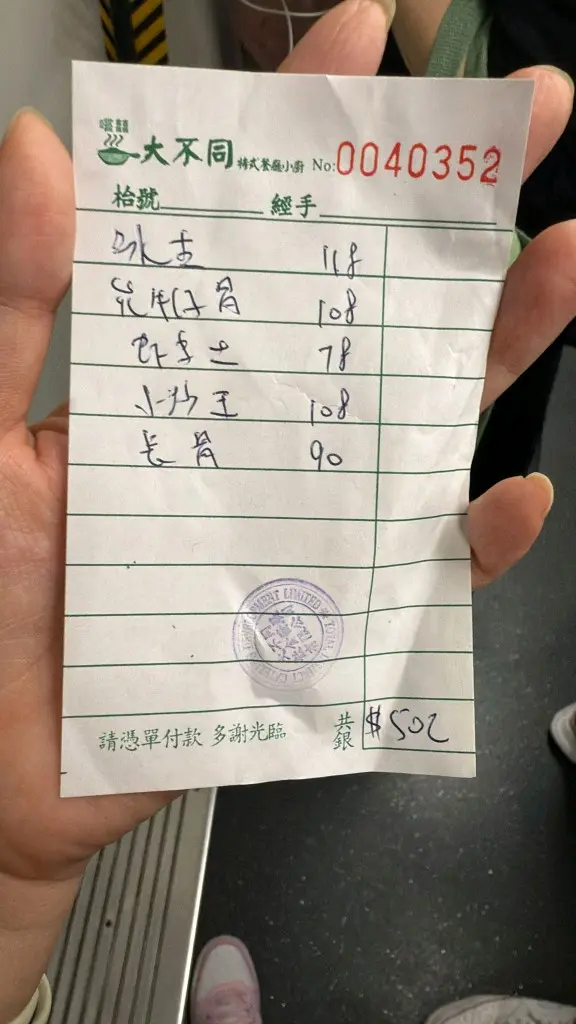 大不同 韓式餐廳小廚 No:0040352
枱號 經手
118
牛仔骨 108
虾多士 78
小炒王 108
長骨 90
請憑單付款 多謝光臨 共銀 $502